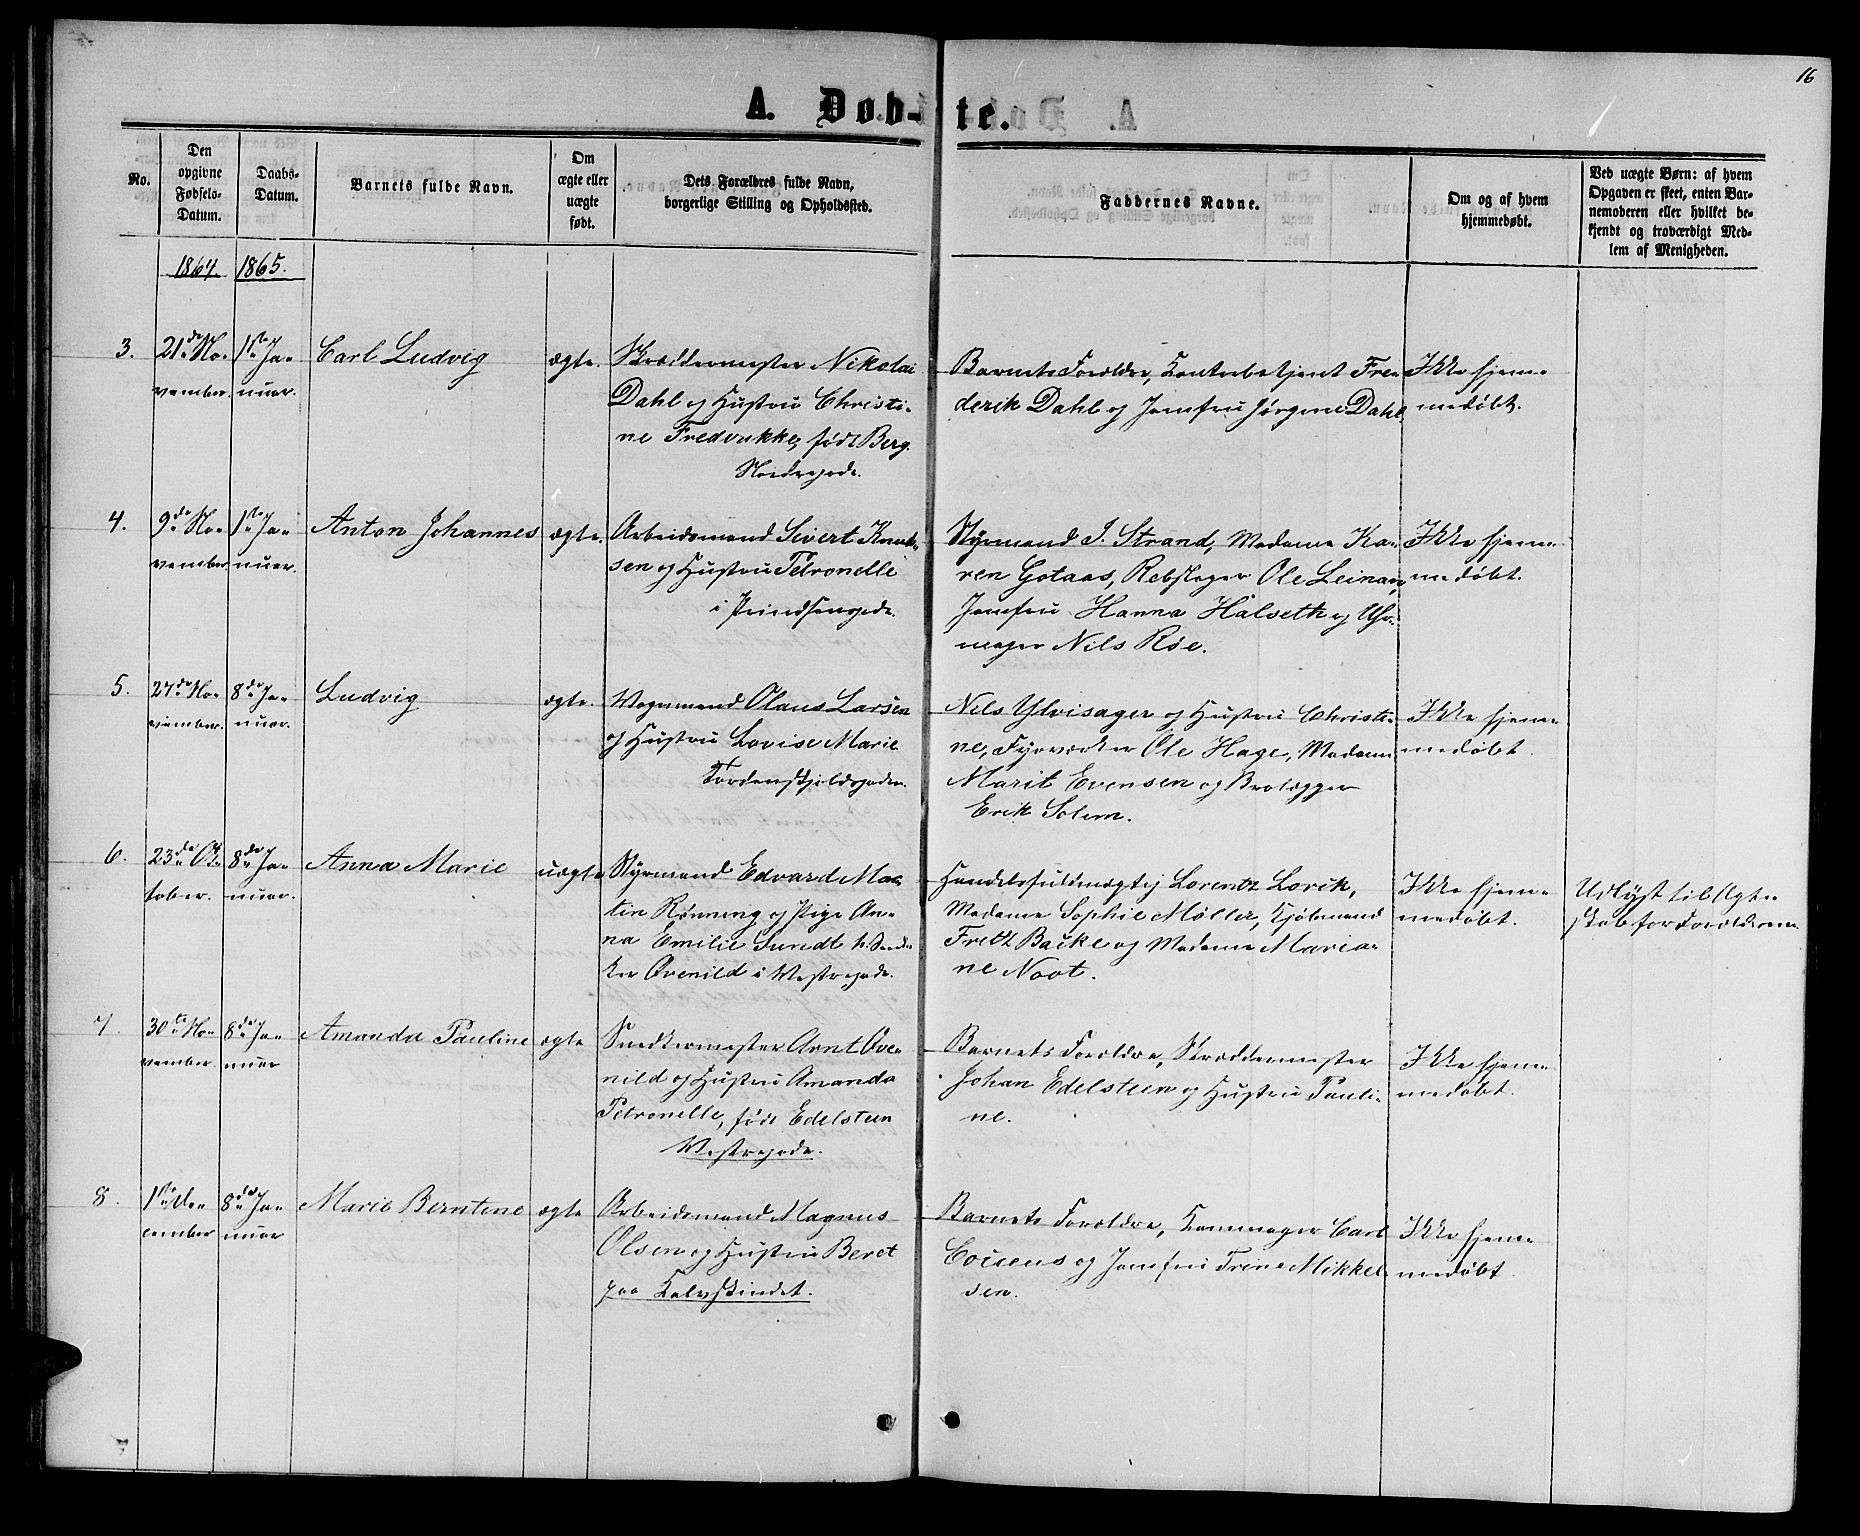 16
A. Døb-te.
No.
Den
opgivne
Fødsels-
Datum.
Daabs-
Datum.
Barnets fulde Navn.
Om
ægte eller
uægte
født.
Dets Forældres fulde Navn,
borgerlige Stilling og Opholdssted.
Faddernes Navne.
Om og af hvem
hjemmedøbt.
Ved uægte Børn: af hvem
Opgaven er skeet, enten Bar-
nemoderen eller hvilket be-
kjendt og troværdigt Med-
lem af Menigheden.
1864 1865.
3.
21de No-
vember.
1ste Ja-
nuar.
Carl Ludvig
ægte.
Skræddermester Nikolai
Dahl og Hustru Christi-
ne Fredrikke, født Berg.
Nordregade.
Barnets Forældre, Contorbetjent Fre-
derik Dahl og Jomfru Jørgine Dahl
Ikke hjem-
medøbt.
4.
9de No-
vember
1ste Ja-
nuar.
Anton Johannes
ægte.
Arbeidsmand Sivert Knud-
sen og Hustru Petronelle
i Prindsensgade.
Styrmand J. Strand, Madame Ka-
ren Gotaas, Rebslager Ole Leinan,
Jomfru Hanna Halseth og Uhr-
mager Nils Røe.
Ikke hjem-
medøbt.
5.
27de No-
vember.
8de Ja-
nuar.
Ludvig
ægte.
Vognmand Olaus Larsen
og Hustru Lovise Marie
Tordenskjoldsgaden.
Nils Ylvisager og Hustru Christi-
ne, Fyrværker Ole Hage, Madame
Marit Evensen og Brolægger
Erik Solem.
Ikke hjem-
medøbt.
6.
23de Ok-
tober.
8de Ja-
nuar.
Anna Marie
uægte
Styrmand Edvard Mar-
tin Rønning og Pige An-
na Emilie Sundt h. Sned-
ker Øvenild i Vestregade.
Handelsfuldmægtig Lorentz Lorck,
Madame Sophie Møller, Kjøbmand
Fritz Backe og Madame Maria-
ne Noot.
Ikke hjem-
medøbt.
Udlyst til Ægte-
skab for Forældrene.
7.
30te No-
vember.
8de Ja-
nuar
Amanda Pauline
ægte
Snedkermester Arnt Øve-
nild og Hustru Amanda
Petronelle, født Edelsteen
Vestregade.
Barnets Forældre, Skræddermester
Johan Edelsteen og Hustru Pauli-
ne.
Ikke hjem-
medøbt.
8.
1ste De-
cember
8de Ja-
nuar
Marie Berntine
ægte
Arbeidsmand Magnus
Olsen og Hustru Beret
paa Kalvskindet.
Barnets Forældre, Kammager Carl
og Jomfru Trine Mikkel-
sen.
Ikke hjem-
medøbt.